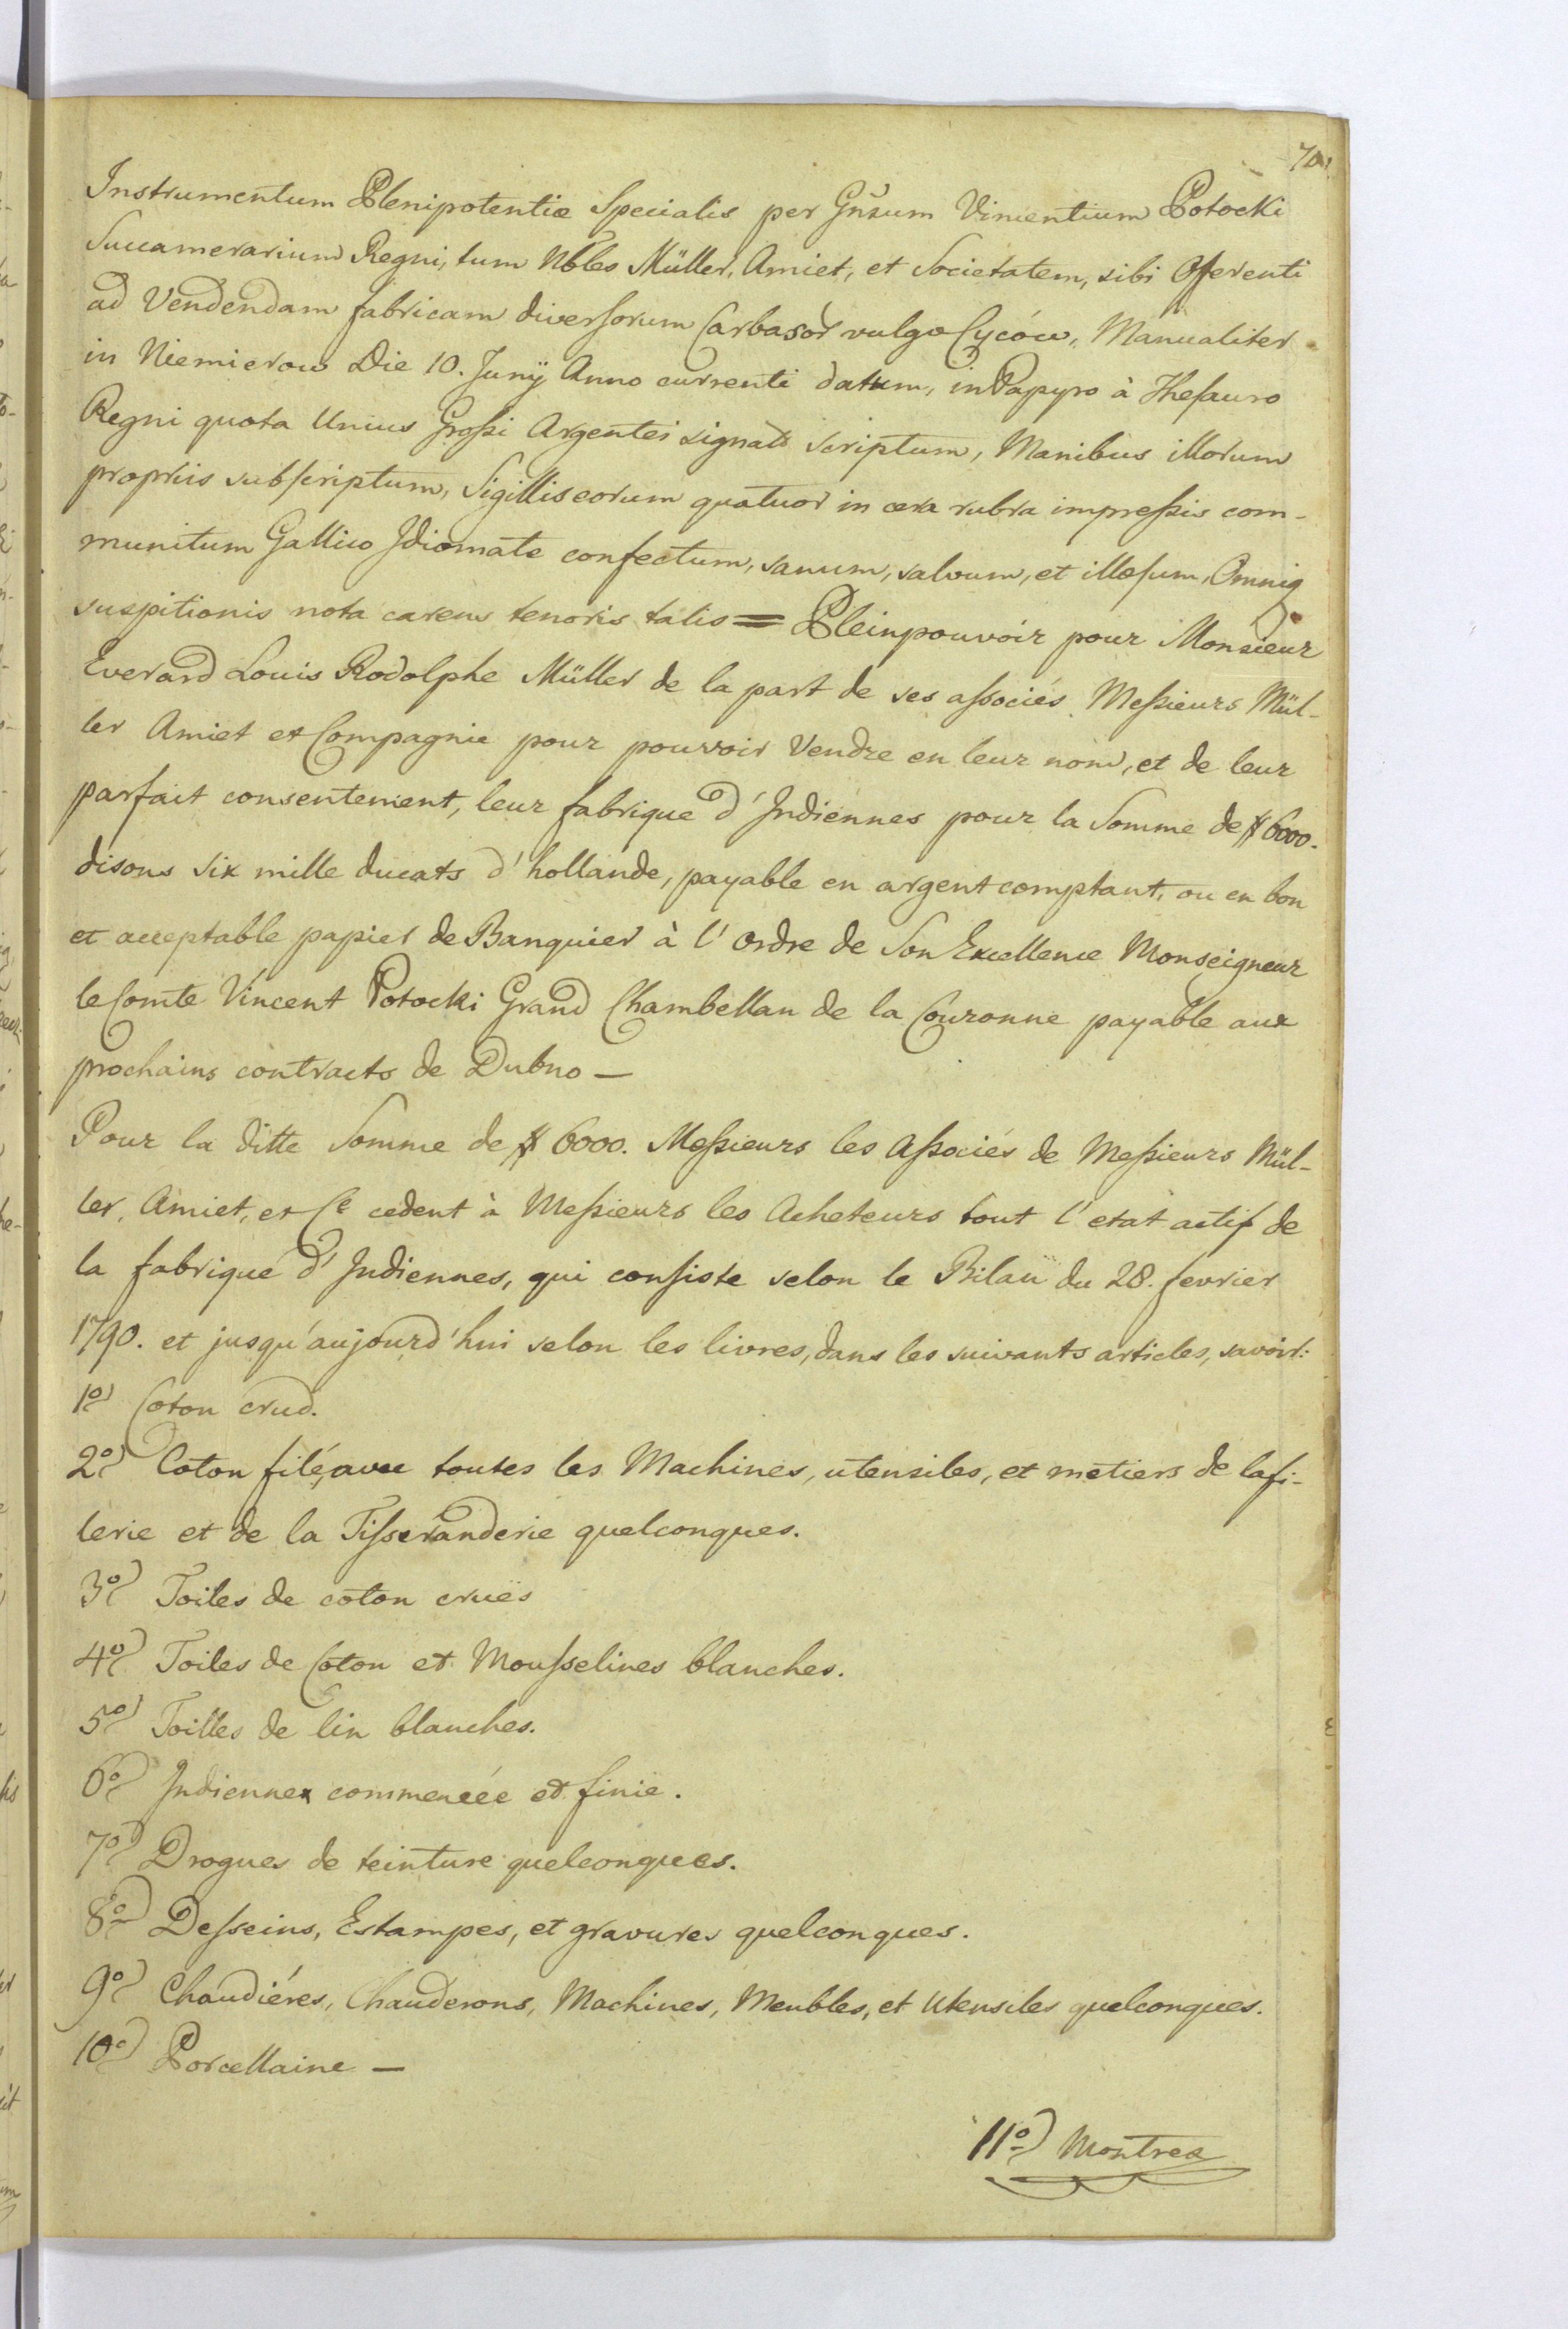 70.
Instrumentum Plenipotentiæ Specialis per Gñsum Vincentium Potocki
Succamerarium Regni, tum Nbles Müller, Amiet, et Societatem, sibi Oferenti
ad Vendendam fabricam diversorum Carbasor vulgo Cyców, Manualiter
in Niemierow Die 10. Junÿ Anno currenti datum, in Papyro à Thesauro
Regni quota Unius Grossi Argentei signato scriptum, Manibus illorum
propriis subscriptum, Sigillis eorum quatuor in cera rubra impressis com-
munitum Gallico Idiomate confectum, sanum, salvum, et illæsum, Omniq
suspitionis nota carens tenoris talis = Pleinpouvoir pour Monsieur
Everard Louis Rodolphe Müller de la part de ses associés Messieurs Mül-
ler Amiet et Compagnie pour pouvoir Vendre en leur nom, et de leur
parfait consentement, leur fabrique d'Indiennes pour la Somme de # 6000.
disons six mille ducats d'hollande, payable en argent comptant, ou en bon
et acceptable papier de Banquier à l'Ordre de Son Excellence Monseigneur
le Comte Vincent Potocki Grand Chambellan de la Couronne payable aux
prochains contracts de Dubno —
Pour la ditte Somme de # 6000. Messieurs les Associés de Messieurs Mül-
ler, Amiet, et Ce cedent à Messieurs les Acheteurs tout l'etat actif de
la fabrique d'Indiennes, qui consiste selon le Bilan du 28. fevrier
1790. et jusqu'aujourd'hui selon les livres, dans les suivants articles, savoir:
1o Coton crud.
2o Coton filé, avec toutes les Machines, utensiles, et metiers de la fi-
lerie et de la Tisseranderie quelconques.
3o Toiles de coton crues
4o Toiles de Coton et Mousselines blanches.
5o Toilles de lin blanches.
6o Indiennes commencée et finie.
7o Drogues de teinture quelconques.
8o Desseins, Estampes, et gravures quelconques.
9o Chaudiéres, Chauderons, Machines, Meubles, et Utensiles quelconques.
10o Porcellaine —
11o Montres